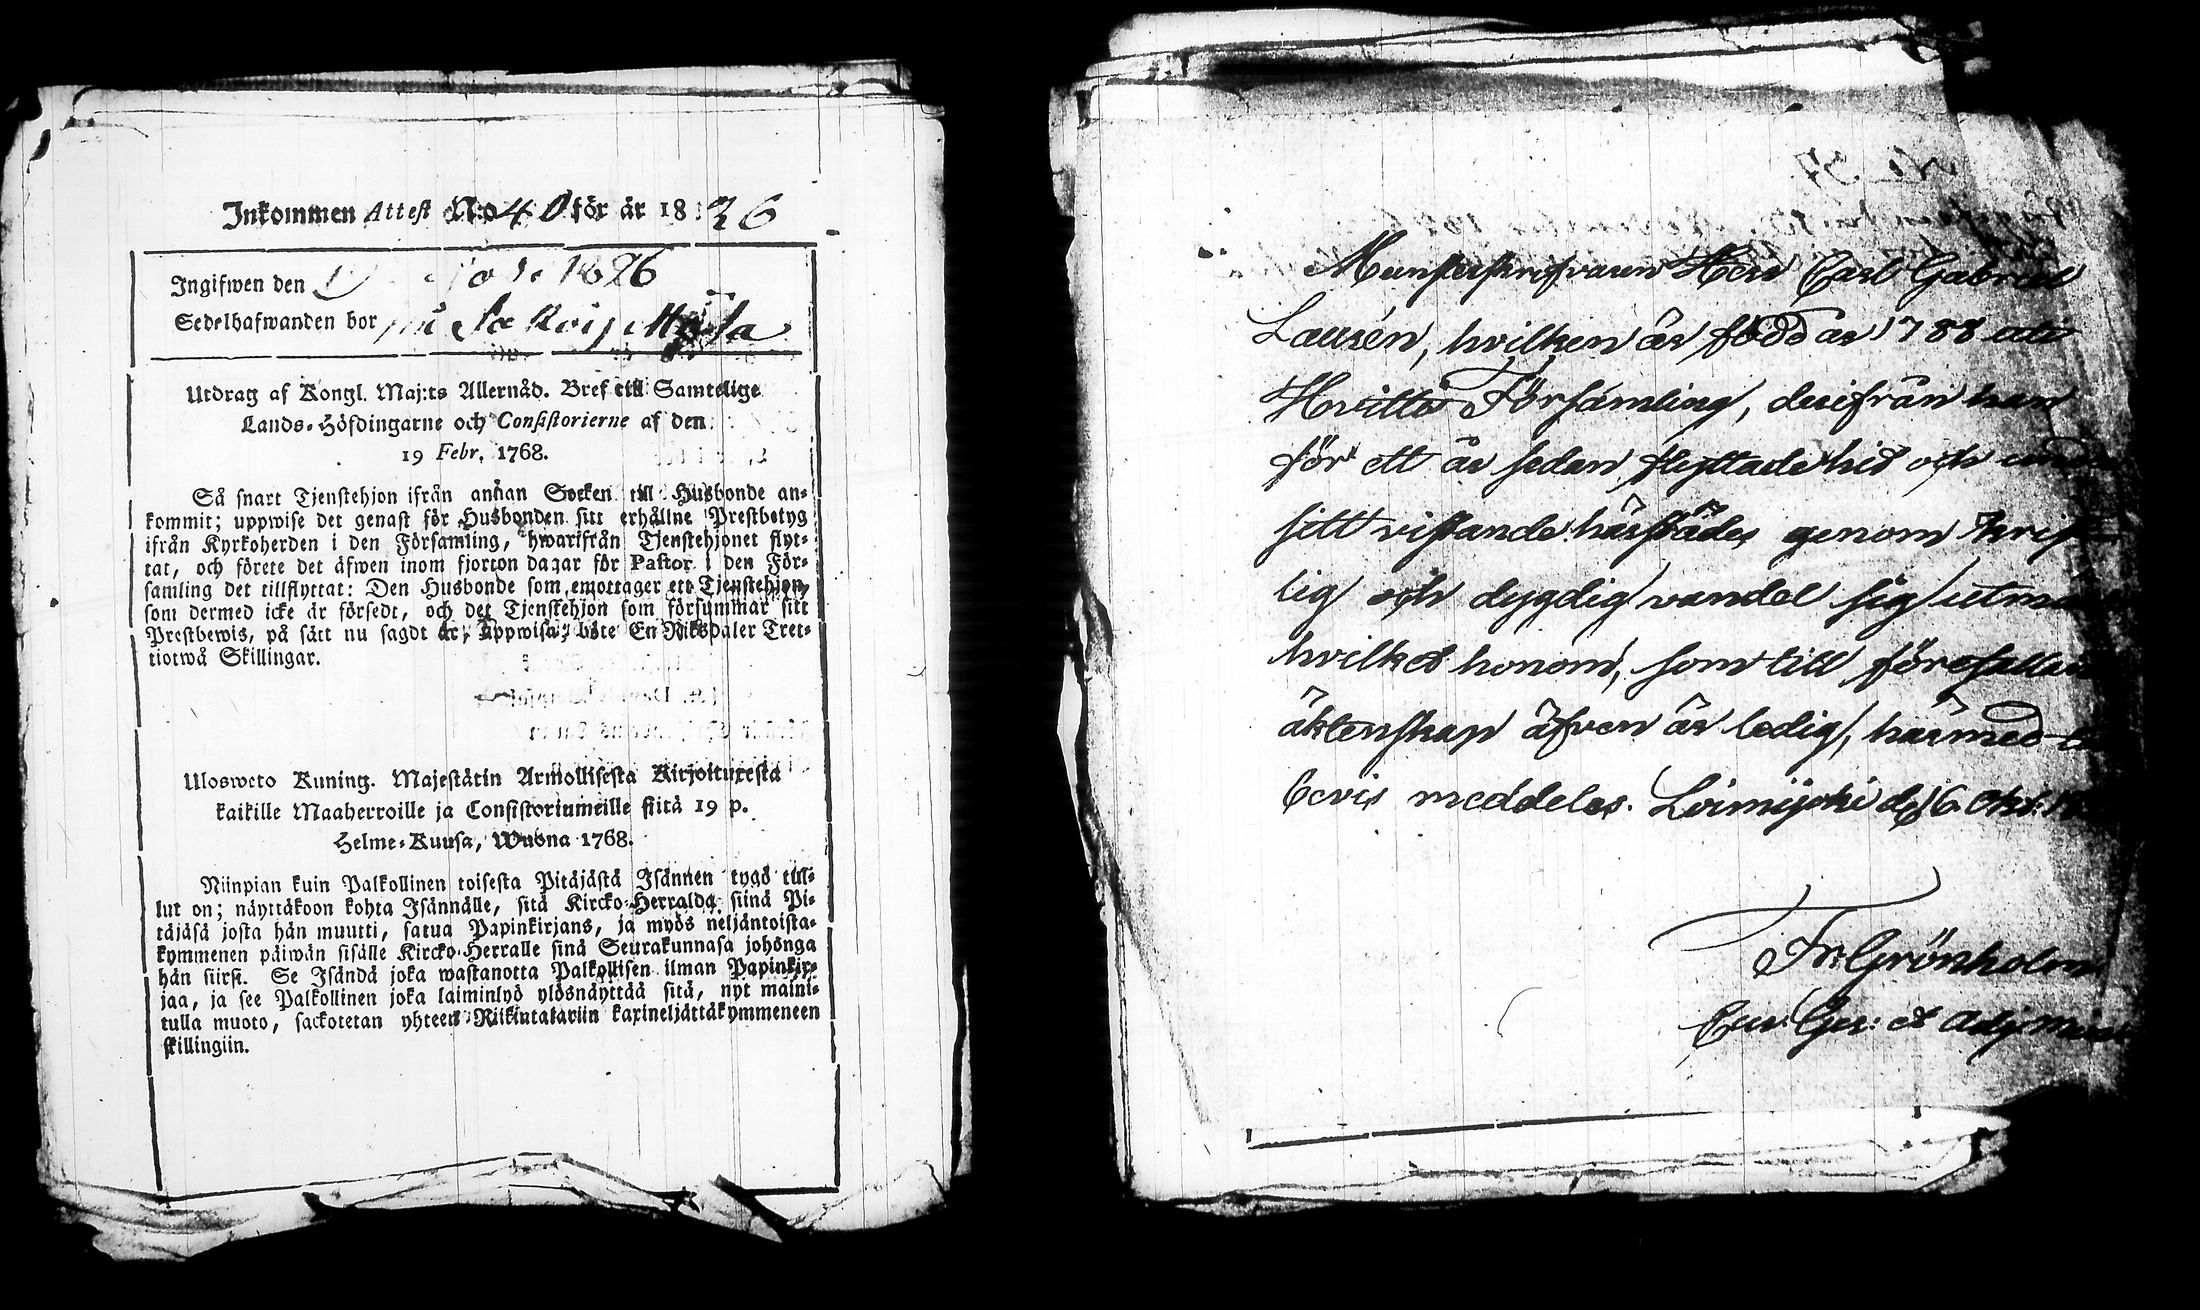 Inkommen Attest N:o 40 för år 1826
Ingifwen den 1826
Sedelhafwanden bor
Utdrag af Kongl. Maj:ts Allernåd. Bref till Samtelige
Lands-Höfdingarne och Consistorierne af den
19 Febr. 1768.
Så snart Tjenstehjon ifrån annan Socken till Husbonde an-
kommit; uppwise det genast för Husbonden sitt erhållne Prestbetyg
ifrån Kyrkoherden i den Församling, hwarifrån Tjenstehjonet flyt-
tat, och förete det äfwen inom fjorton dagar för Pastor i den För-
samling det tillflyttat: Den Husbonde som emottager ett Tjenstehjon,
som dermed icke är försedt, och det Tjenstehjon som försummar sitt
Prestbewis, på sätt nu sagdt är, uppwisa; böte En Riksdaler Tret-
tiotwå Skillingar.
Ulosweto Kuning. Majestätin Armollisesta Kirjoituxesta
kaikille Maaherroille ja Consistoriumeille siitä 19 p.
Helme-Kuusa, Wuonna 1768.
Niinpian kuin Palkollinen toisesta Pitäjästä Isännen tygö tul-
lut on; näyttäkoon kohta Isännälle, sitä Kircko-Herralda siinä Pi-
täjäsä josta hän muutti, satua Papinkirjans, ja myös neljäntoista-
kymmenen päiwän sisälle Kircko-Herralle sinä Seurakunnasa johonga
hän siirsi. Se Isändä joka wastanotta Palkollisen ilman Papinkir-
jaa, ja see Palkollinen joka laiminlyö ylösnäyttää sitä, nyt maini-
tulla muoto, sackotetan yhteen Riikintalariin kaxineljättäkymmeneen
skillingiin.
No 37
Munsterskrifvaren Herr Carl Gabriel
Laurén, hvilken är född år 1788 uti
Hvittis Församling, derifrån han
för ett år sedan flyttade hid och
sitt vistande härstädes genom krist-
lig och dygdig vandel sig
hvilket honom, som till
äktenskap äfven är ledig, härmed
bevis meddeles. Loimijoki d. 6. Okt.
Fr. Grönholm